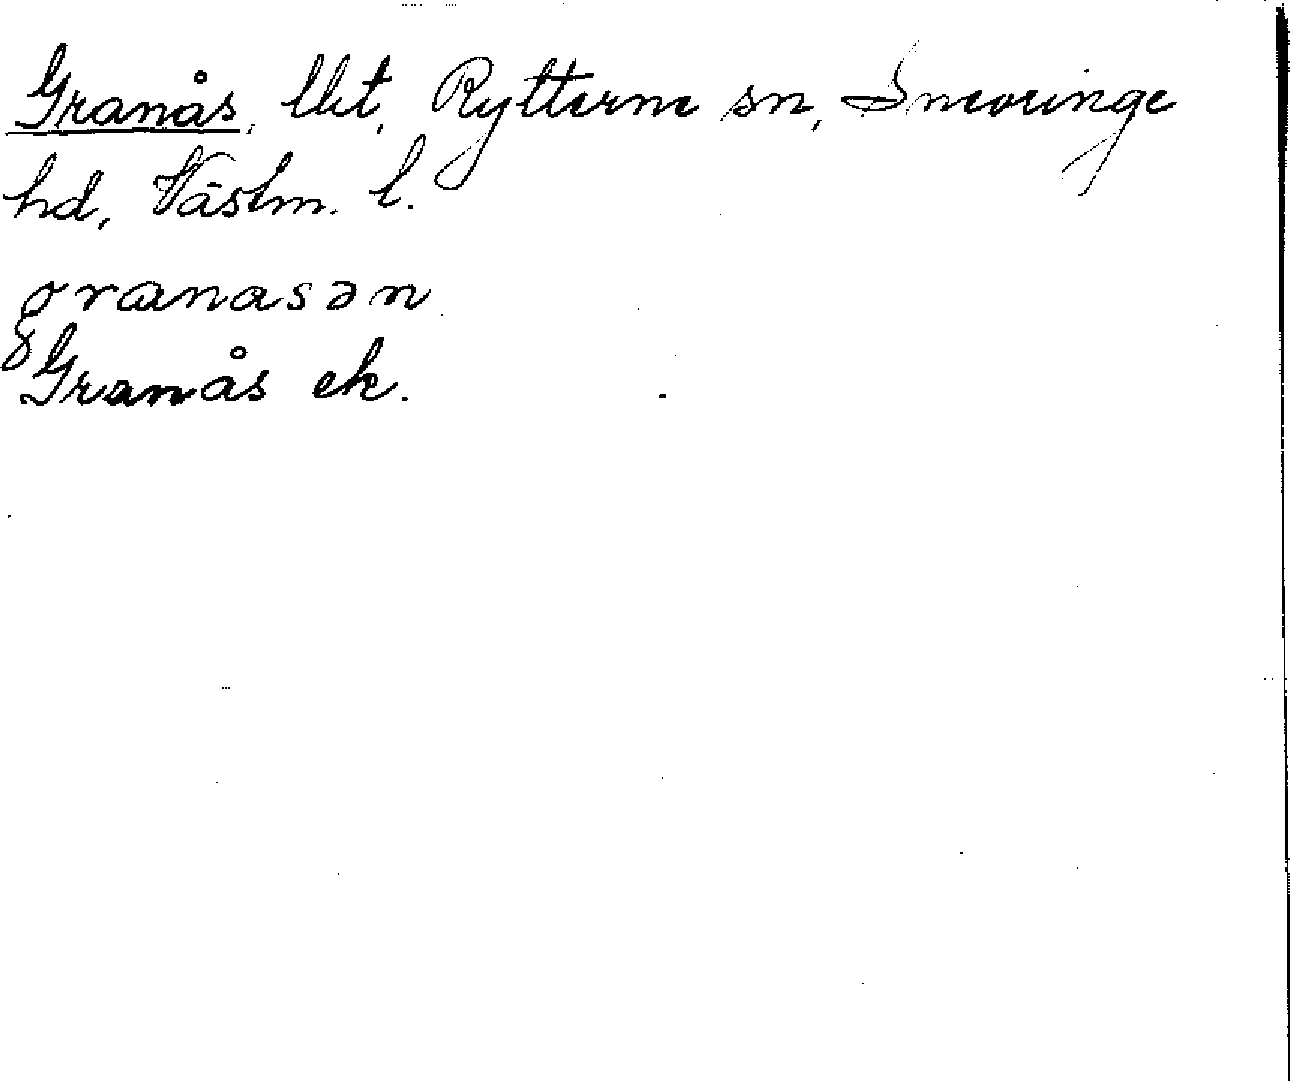 Granås, lht, Rytterne sn, Snevringe
hd, Västm. l.
granasən
Granås ek.